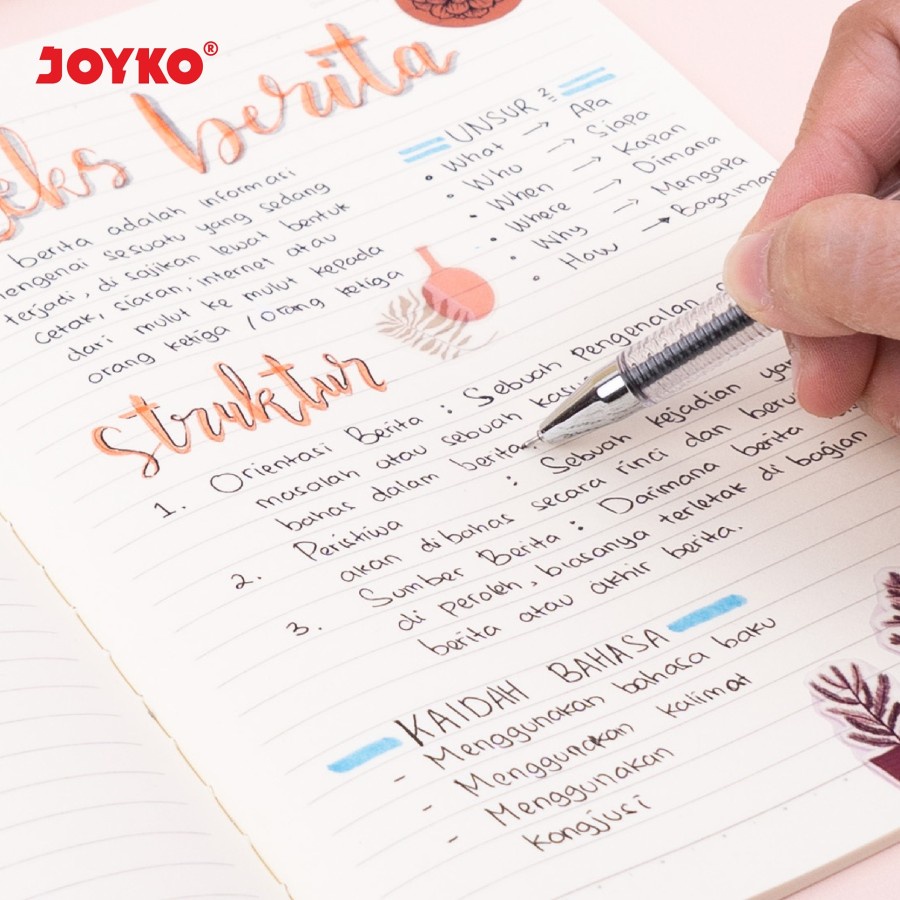 JOYKO®
teks berita
berita adalah informasi
mengenai sesuatu yang sedang
terjadi, di sajikan lewat bentuk
cetak, siaran, internet atau
dari mulut ke mulut kepada
orang ketiga / orang ketiga
UNSUR²
• What → Apa
• Who → Siapa
• When → Kapan
• Where → Dimana
• Why → Mengapa
• How → Bagaimana
struktur
1. Orientasi Berita : Sebuah pengenalan
masalah atau sebuah
bahas dalam berita
2. Peristiwa : Sebuah kejadian
akan dibahas secara rinci dan
3. Sumber Berita : Darimana berita
di peroleh, biasanya terletak di bagian
berita atau akhir berita.
KAIDAH BAHASA
- Menggunakan bahasa baku
- Menggunakan kalimat
- Menggunakan
kongjusi